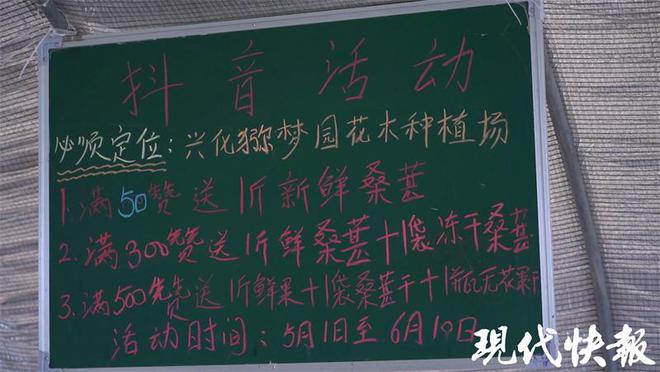 抖音活动
必须定位：兴化猕梦园花木种植场
1.满50赞送1斤新鲜桑葚
2.满300赞送1斤鲜桑葚+1袋冻干桑葚
3.满500赞送1斤鲜果+1袋桑葚干+1瓶无花果
活动时间：5月1日至6月10日
现代快报